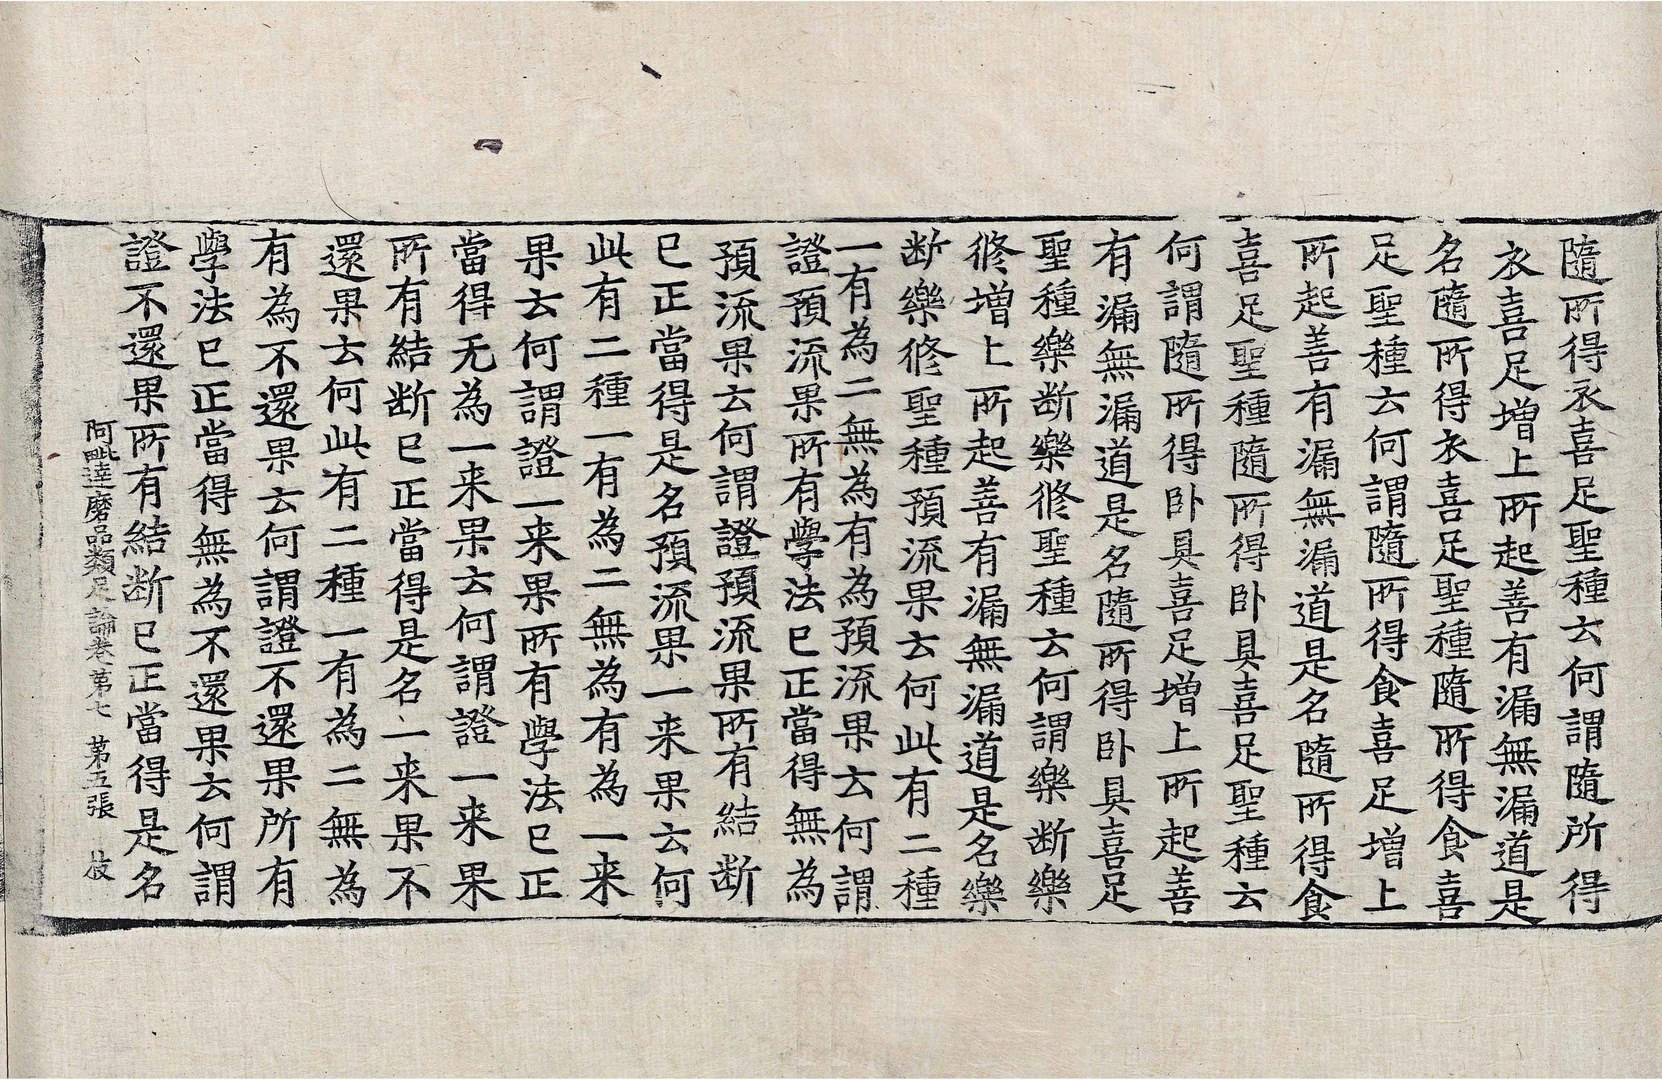 隨所得衣喜足聖種云何謂隨所得
衣喜足增上所起善有漏無漏道是
名隨所得衣喜足聖種隨所得食喜
足聖種云何謂隨所得食喜足增上
所起善有漏無漏道是名隨所得食
喜足聖種隨所得卧具喜足聖種云
何謂隨所得卧具喜足增上所起善
有漏無漏道是名隨所得卧具喜足
聖種樂断樂修聖種云何謂樂断樂
修增上所起善有漏無漏道是名樂
断樂修聖種預流果云何此有二種
一有為二無為有為預流果云何謂
證預流果所有學法已正當得無為
預流果云何謂證預流果所有結断
已正當得是名預流果一来果云何
此有二種一有為二無為有為一来
果云何謂證一来果所有學法已正
當得无為一来果云何謂證一来果
所有結断已正當得是名一来果不
還果云何此有二種一有為二無為
有為不還果云何謂證不還果所有
學法已正當得無為不還果云何謂
證不還果所有結断已正當得是名
阿毗達磨品類足論卷第七 第五張 伎